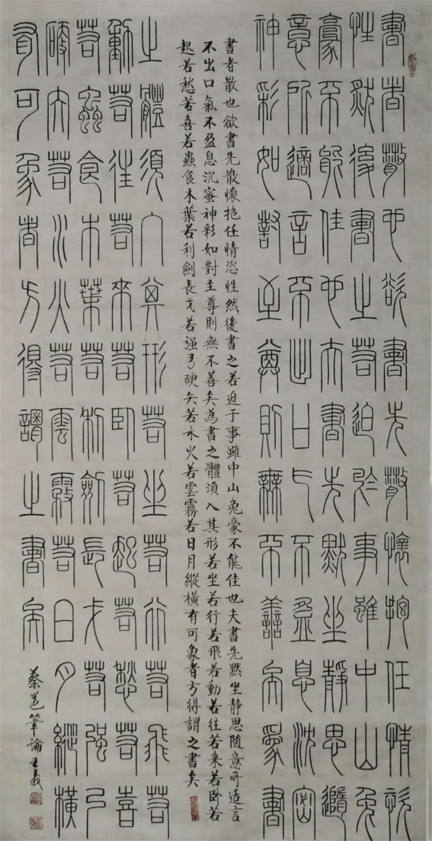 書者散也欲書先散懷抱任情恣
性然後書之若迫於事雖中山兔
豪不能佳也夫書先默坐靜思隨
意所適言不出口气不盈息沈密
神彩如對至尊則無不善矣為書
書者散也欲書先散懷抱任情恣性然後書之若迫于事雖中山兔豪不能佳也夫書先默坐靜思隨意所適言
不出口氣不盈息沉蜜神彩如對至尊則無不善矣為書之體須入其形若坐若行若飛若動若往若来若卧若
起若愁若喜若蟲食木葉若利劍長戈若强弓硬矢若水火若雲霧若日月縱橫有可象者方得謂之書矣
之體須入其形若坐若行若飛若
動若往若來若臥若起若愁若喜
若蟲食木葉若利劍長戈若強弓
硬矢若水火若雲霧若日月縱橫
有可象者方得謂之書矣
蔡邕筆論 王義